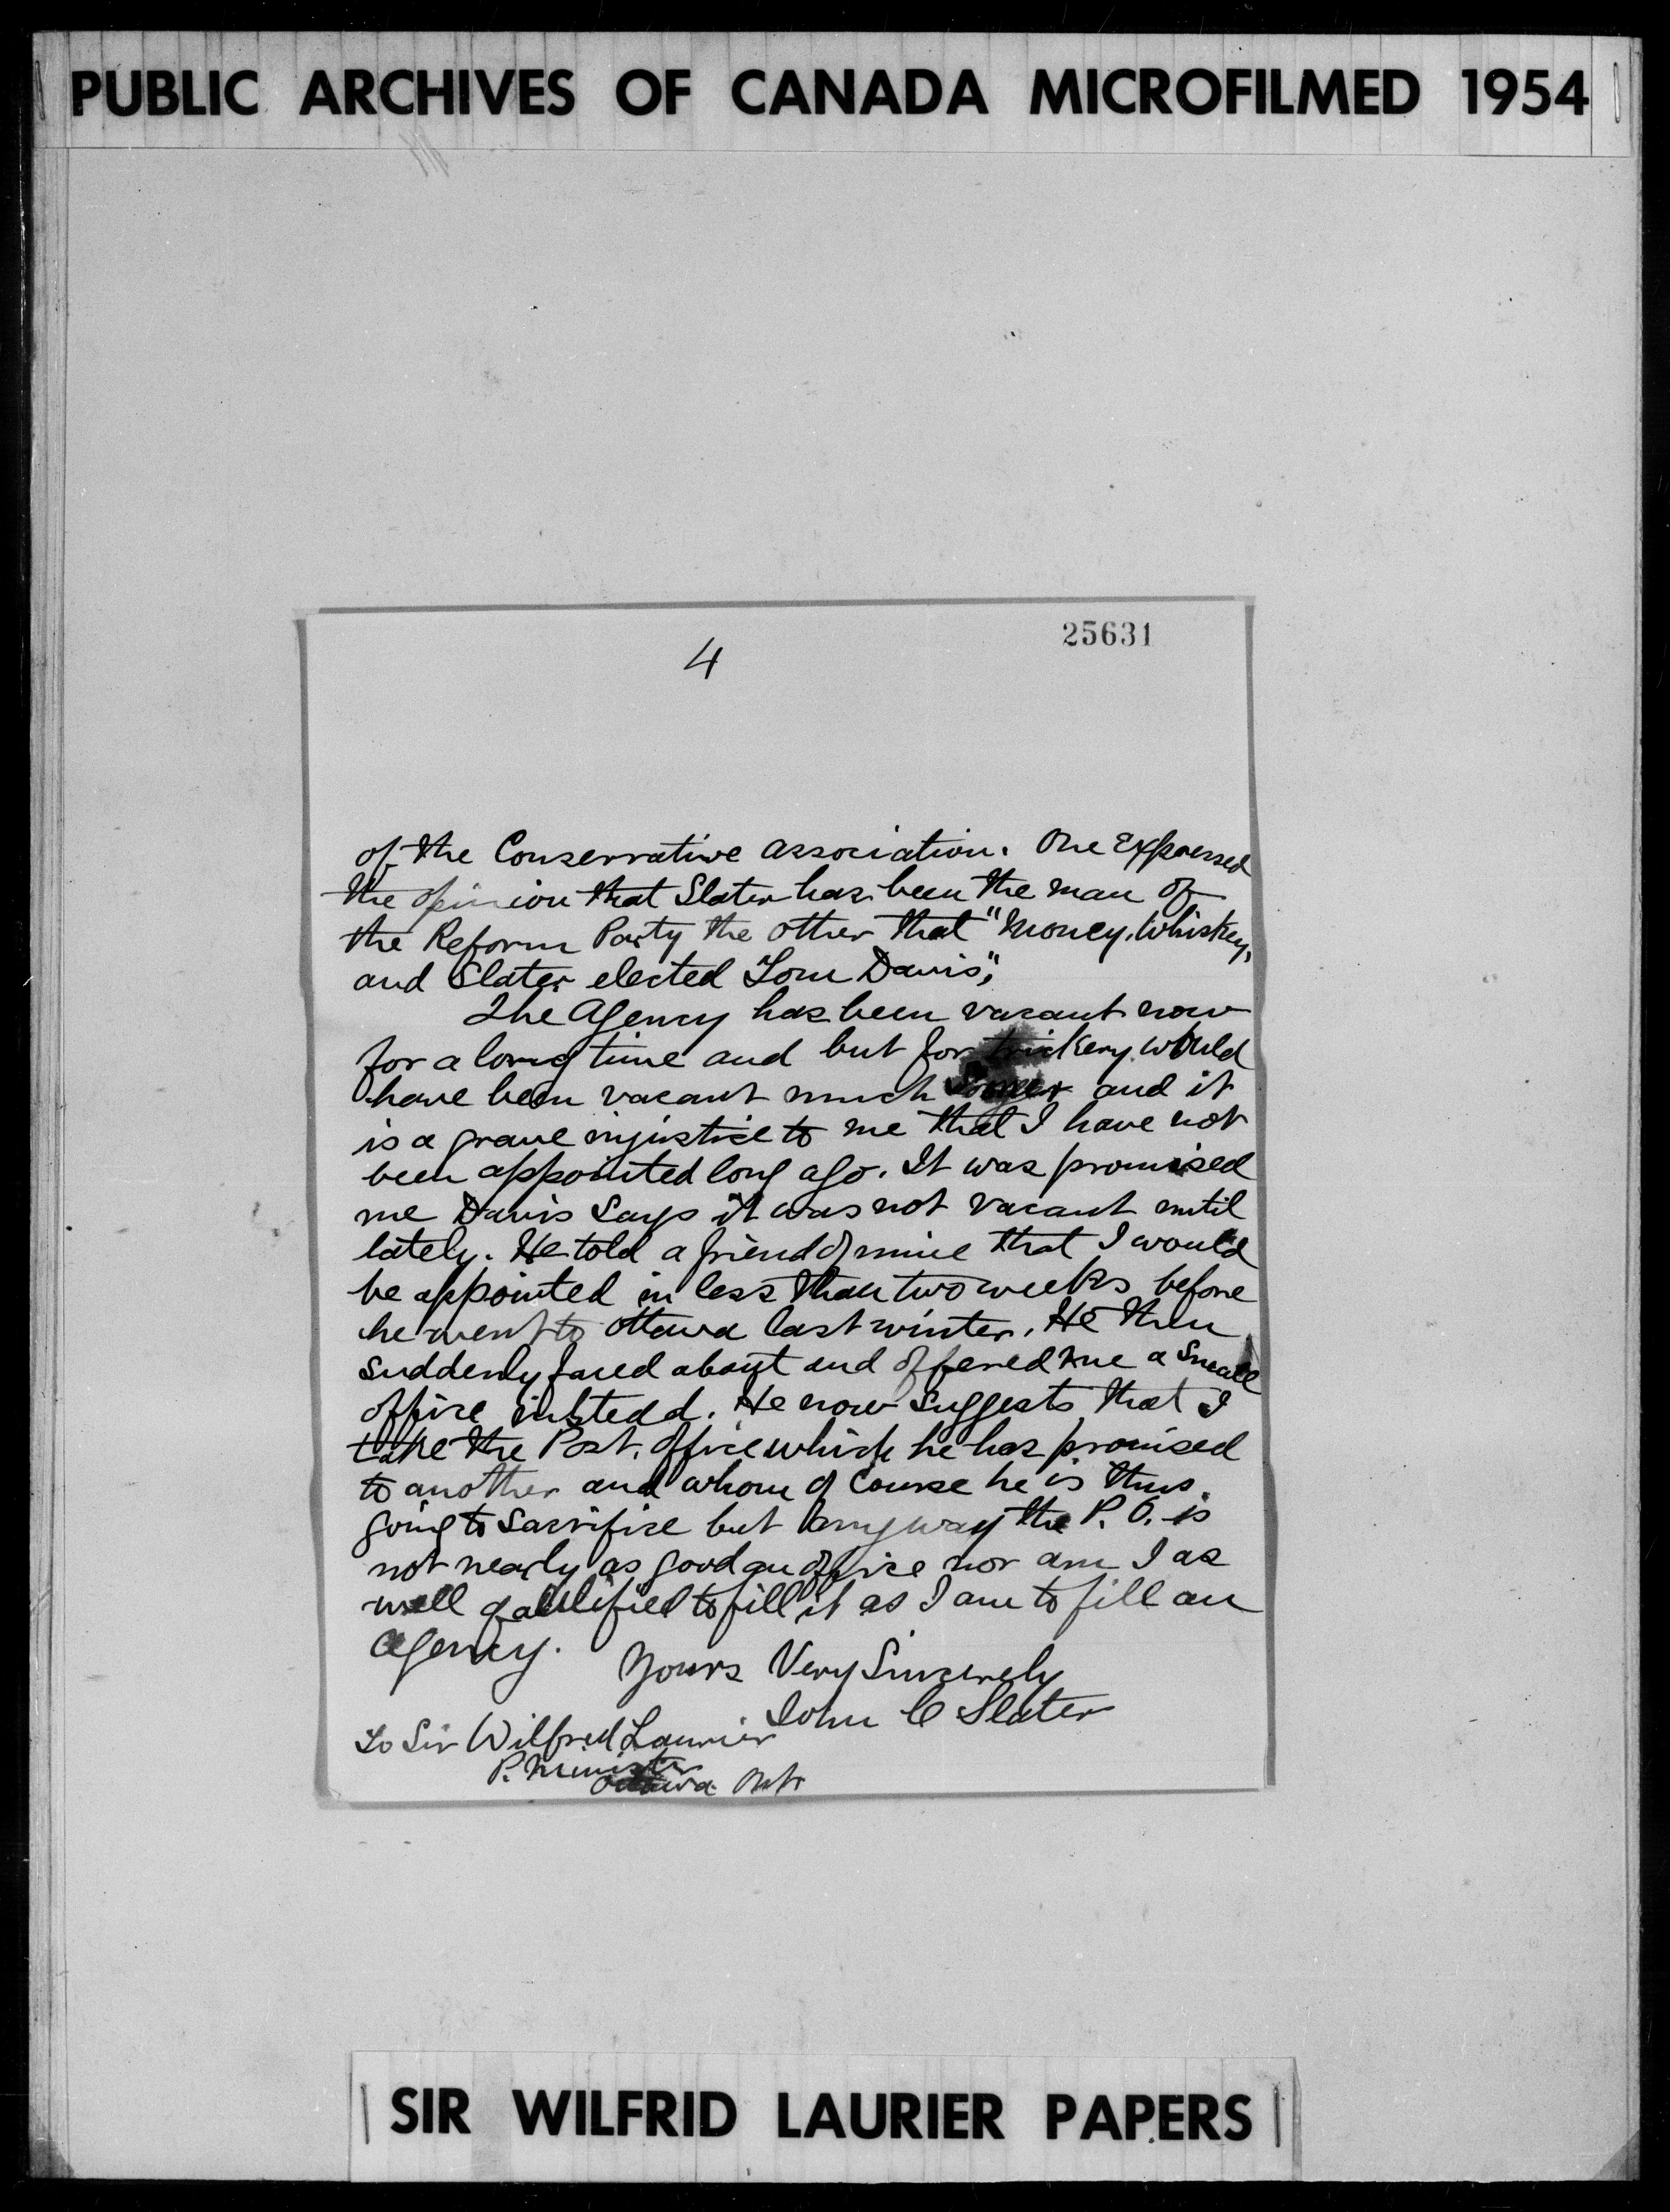 PUBLIC ARCHIVES OF CANADA MICROFILMED 1954
25631
4
of the Conservative association. One Expressed
the opinion that Slater has been the man of
the Reform Party the other that "Money, Whiskey,
and Slater elected Tom Davis",
The Agency has been vacant now
for a long time and but for trickery would
have been vacant much sooner and it
is a grave injustice to me that I have not
been appointed long ago. It was promised
me Davis says it was not vacant until
lately. He told a friend of mine that I would
be appointed in less than two weeks before
he went to Ottawa last winter. He then
suddenly faced about and offered me a small
office instead. He now suggests that I
take the Post. Office which he has promised
to another and whom of course he is thus
going to sacrifice but anyway the P. O. is
not nearly as good an office nor am I as
well qualified to fill it as I am to fill an
agency.
Yours Very Sincerely
John C Slater
To Sir Wilfred Laurier
P. Minister
Ottawa Ont
SIR WILFRID LAURIER PAPERS